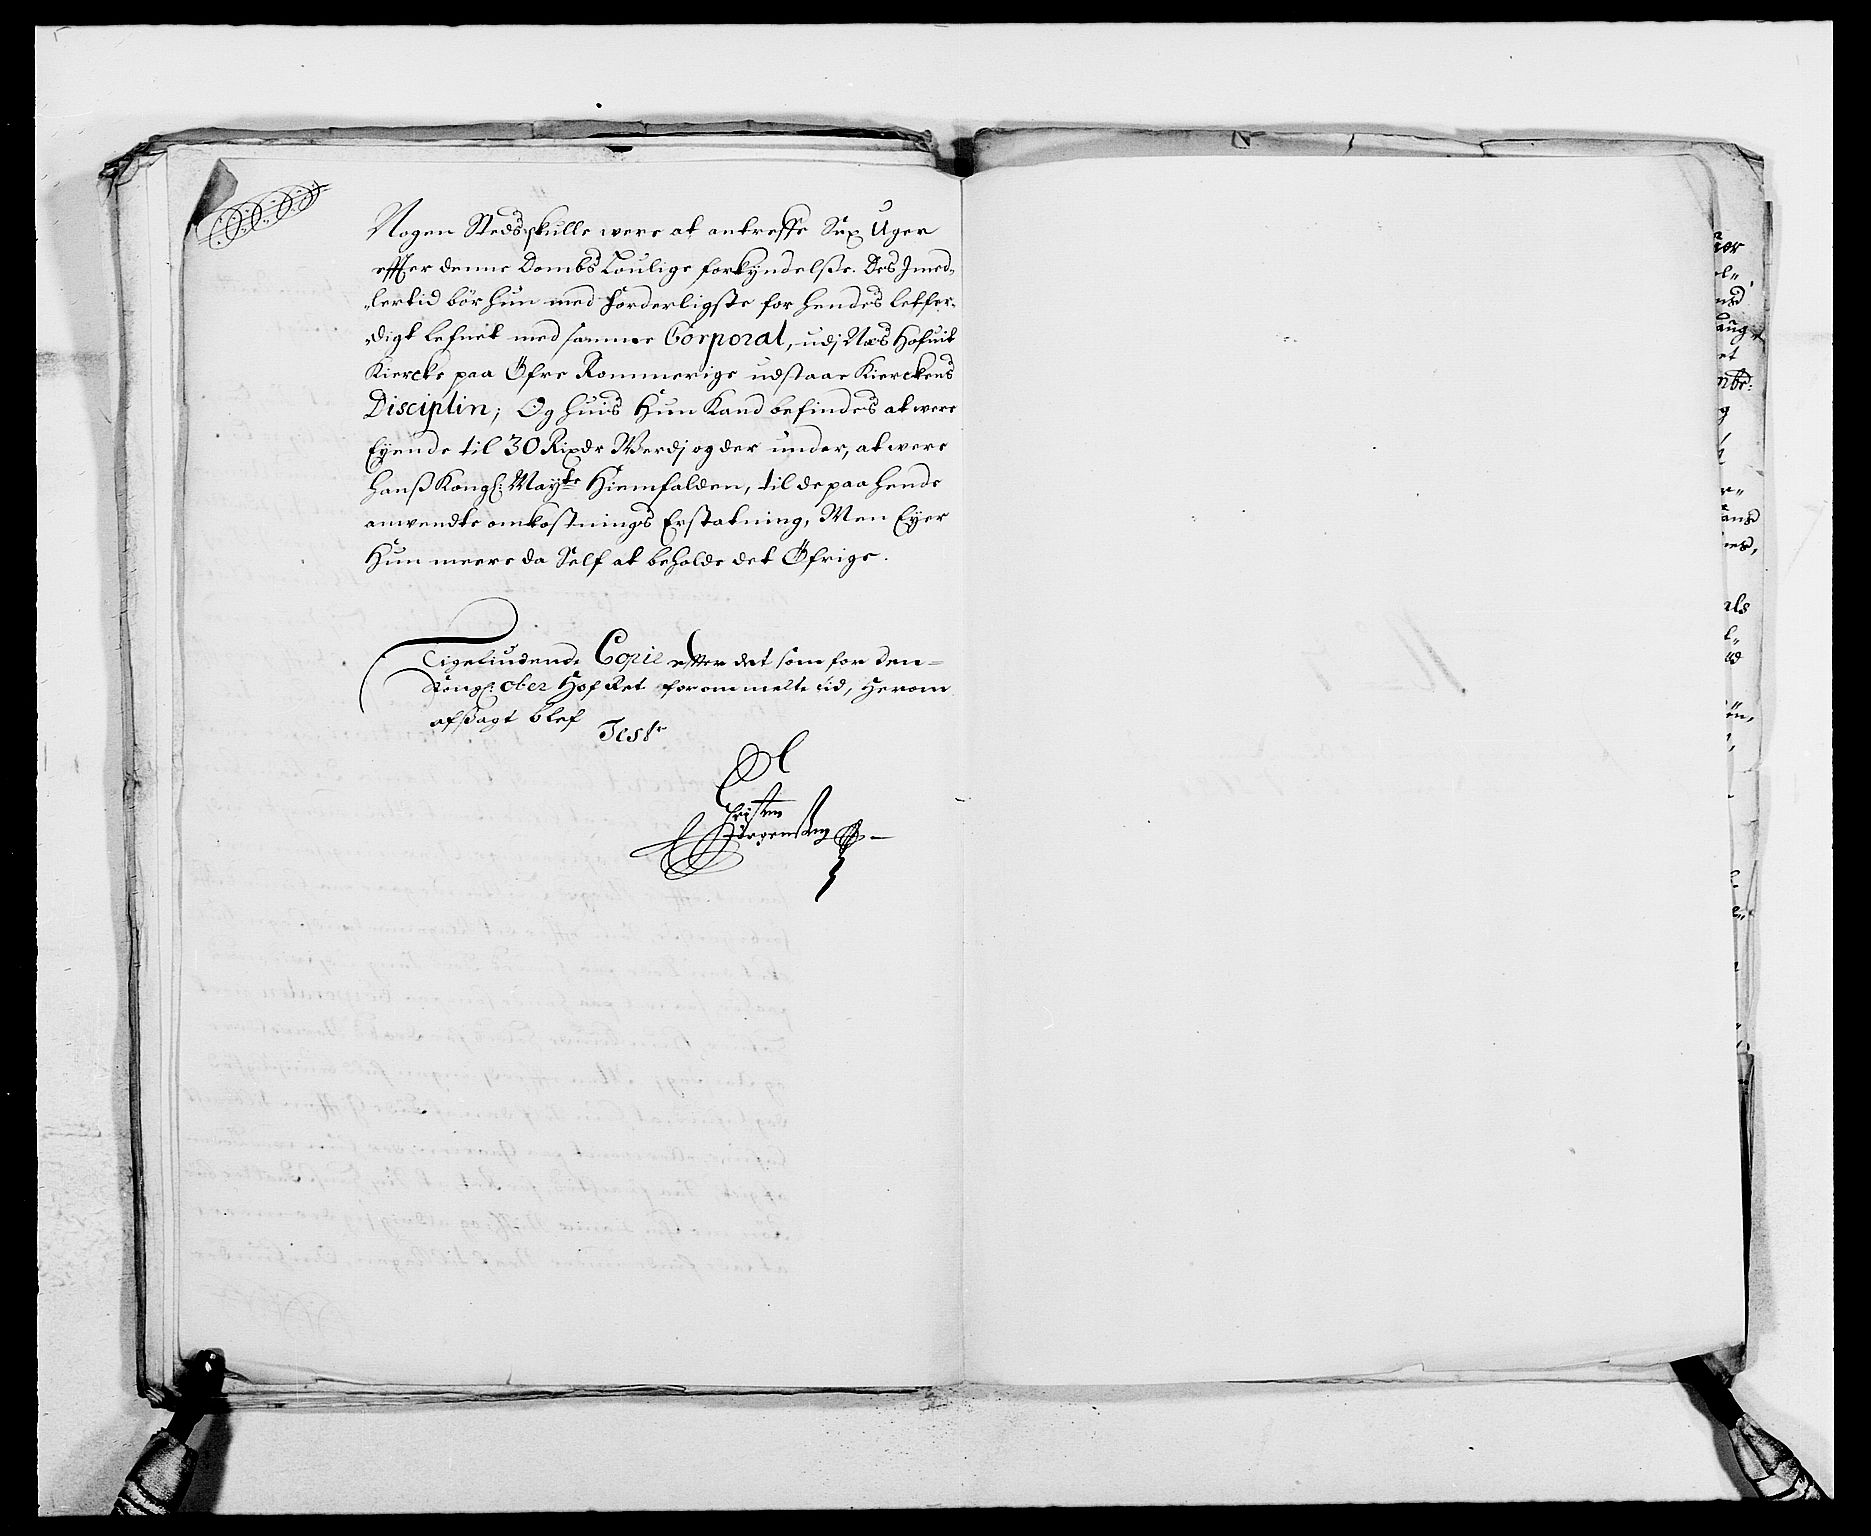 Nogen Steds skulle were at antreffe Sex Uger
effter denne Dombs Loulige forkyndelsse. Des Imed-
-lertid bör hun med Forderligste for hendes letfer-
-digt lefnet med samme Corporal, udj Næs Hofuit
Kiercke paa Öfre Rommerige udstaae Kierckens
Disciplin; Og huis Hun Kand befindes at were
Eyende til 30 Rixdr Werdj og der under, at were
hanß Kongl: Mayts Hiemfalden, til de paa hende
anvendte omkostnings Erstatning, Men Eyer
Hun meere da Self at beholde det Öfrige.
Ligeliudende Copie efter det som for den
Kongl: Ober Hof Ret forommelte tid, Herom
afsagt blef
Test
Christen
Jörgensen